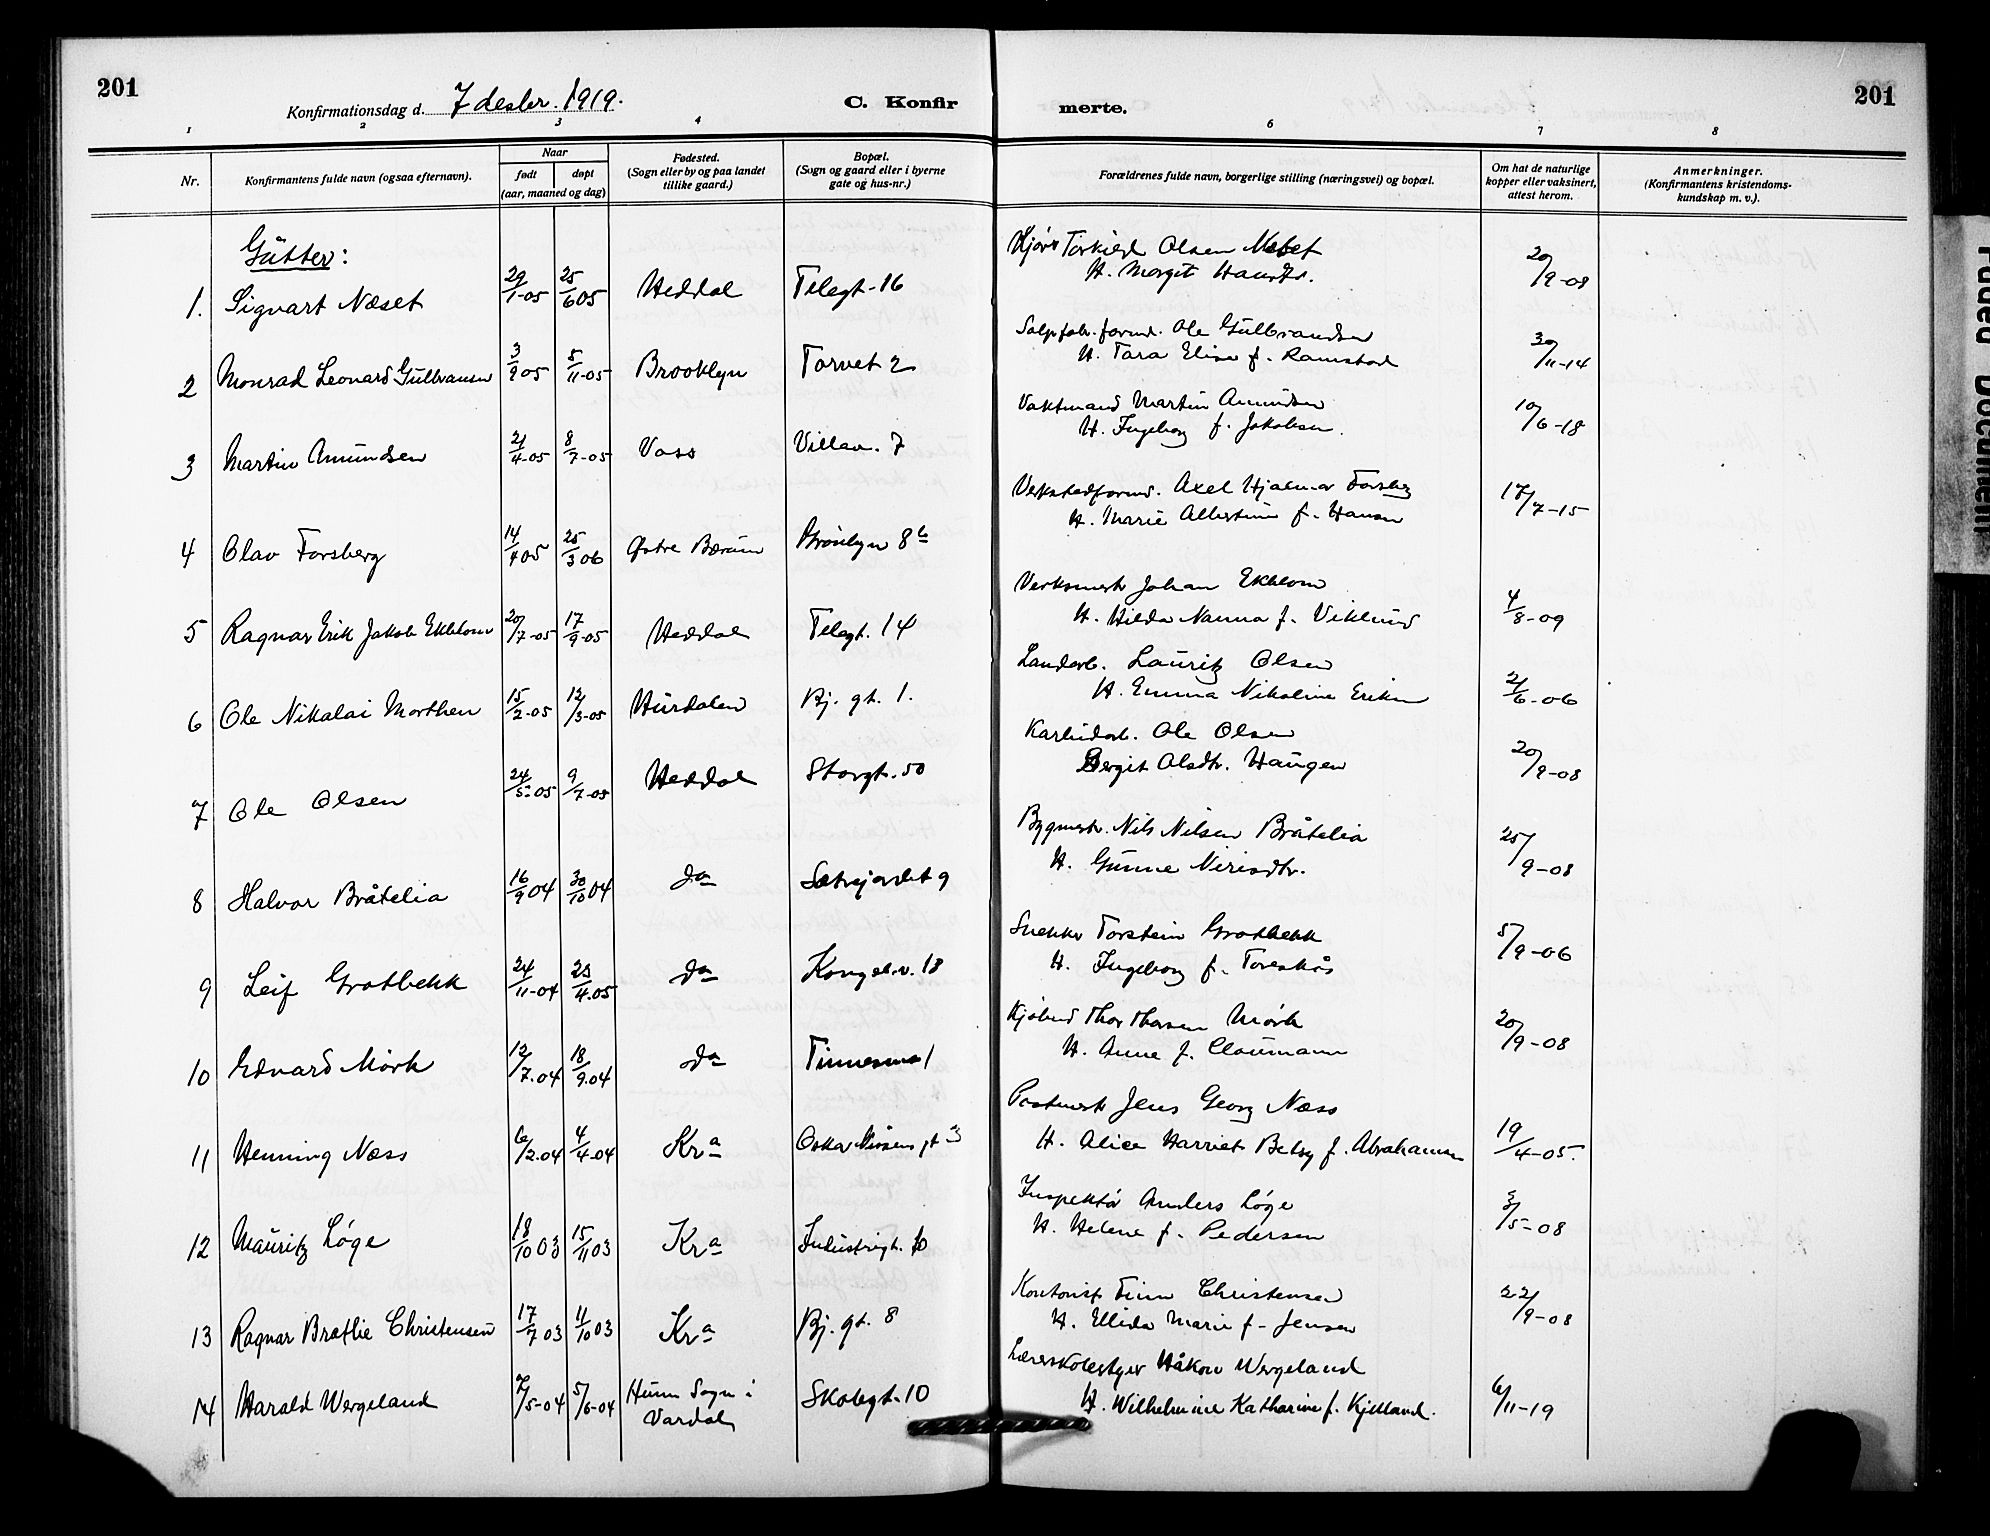 201
Konfirmationsdag d. 7 desbr. 1919.
C. Konfir
merte.
201
1 2 3 4 6 7 8
Nr.
Konfirmantens fulde navn (ogsaa efternavn).
Naar
født døpt
(aar, maaned og dag)
Fødested.
(Sogn eller by og paa landet
tillike gaard.)
Bopæl.
(Sogn og gaard eller i byerne
gate og hus-nr.)
Forældrenes fulde navn, borgerlige stilling (næringsvei) og bopæl.
Om hat de naturlige
kopper eller vaksinert,
attest herom.
Anmerkninger.
(Konfirmantens kristendoms-
kundskap m. v.).
Gutter:
Torkild Olsen Næset
1. Sigvart Næset 29/1-05 25/6 05 Heddal Telegt-16 H. Margit 20/9-08
Ole Gulbrandsen
2 Monrad Leonard Gulbransen 3/9 05 5/11-05 Brooklyn Torvet 2 H. Tara Elise f. Ramstad 30/11-14
Vaktmand Martin Amundsen
3 Martin Amundsen 21/4-05 8/7-05 Voss Villav. 7 H. Ingeborg f. Jakobsen. 10/6-18
Verkstedformd. Axel Hjalmar Forsberg
4 Olav Forsberg 14/4 05 25/3 06 Østre Bærum 8b H. Marie Albertine f. Hansen 17/7-15
Verksmestr Johan Ekblom
5 Ragnar Erik Jakob Ekblom 20/7-05 17/9-05 Heddal Telegt. 14 H. Hilda Nanna f. Viklund 4/8-09
Landarb. Lauritz Olsen
6 Ole Nikolai Morthen 15/2-05 12/3-05 Hurdalen Bj. gt. 1. H. Emma Nikoline Eriksen 2/6-06
Karbidarb. Ole Olsen
7 Ole Olsen 24/5-05 9/7-05 Heddal Storgt. 50 Bergit Olsdtr. Haugen 20/9-08
Bygmestr. Nils Nilsen Bråtelia
8 Halvor Bråtelia 16/9 04 30/10 04 da Sætrejordet 9 H. Gunne Nirisdtr. 25/9-08
Snekker Torstein Grotbekk
9 Leif Grotbekk 24/11-04 23/4.05 da Kongsb.v. 18 H. Ingeborg f. 5/9-06
Kjøbmd Thor Thorsen Mørk
10 Edvard Mørk 12/7.04 18/9.04 da Tinnesmo 1 H. Anne f. Claumann 20/9-08
Postmestr Jens Georg Næss
11 Henning Næss 6/2.04 4/4-04 Kra gt 3 H. Alice Harriet Betsy f. Abrahamsen 19/4-05.
Inspektør Anders Løge
12 Mauritz Løge 18/10 03 15/11 03 Kra Industrigt. 10 H. Helene f. Pedersen 3/5-08
Kontorist Finn Christensen
13 Ragnar Bratlie Christensen 17/7 03 11/10 03 Kra Bj. gt. 8 H. Ellida Marie f. Jensen 22/9-08
Lærerskolestyrer Håkon Wergeland
14 Harald Wergeland 7/5-04 5/6-04 Hunn Sogn i Skolegt. 10 H. Wilhelmine Katharine f. Kjelland. 6/11-19
Vardal